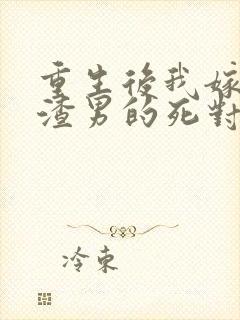 重生後我嫁
渣男的死對
冷東